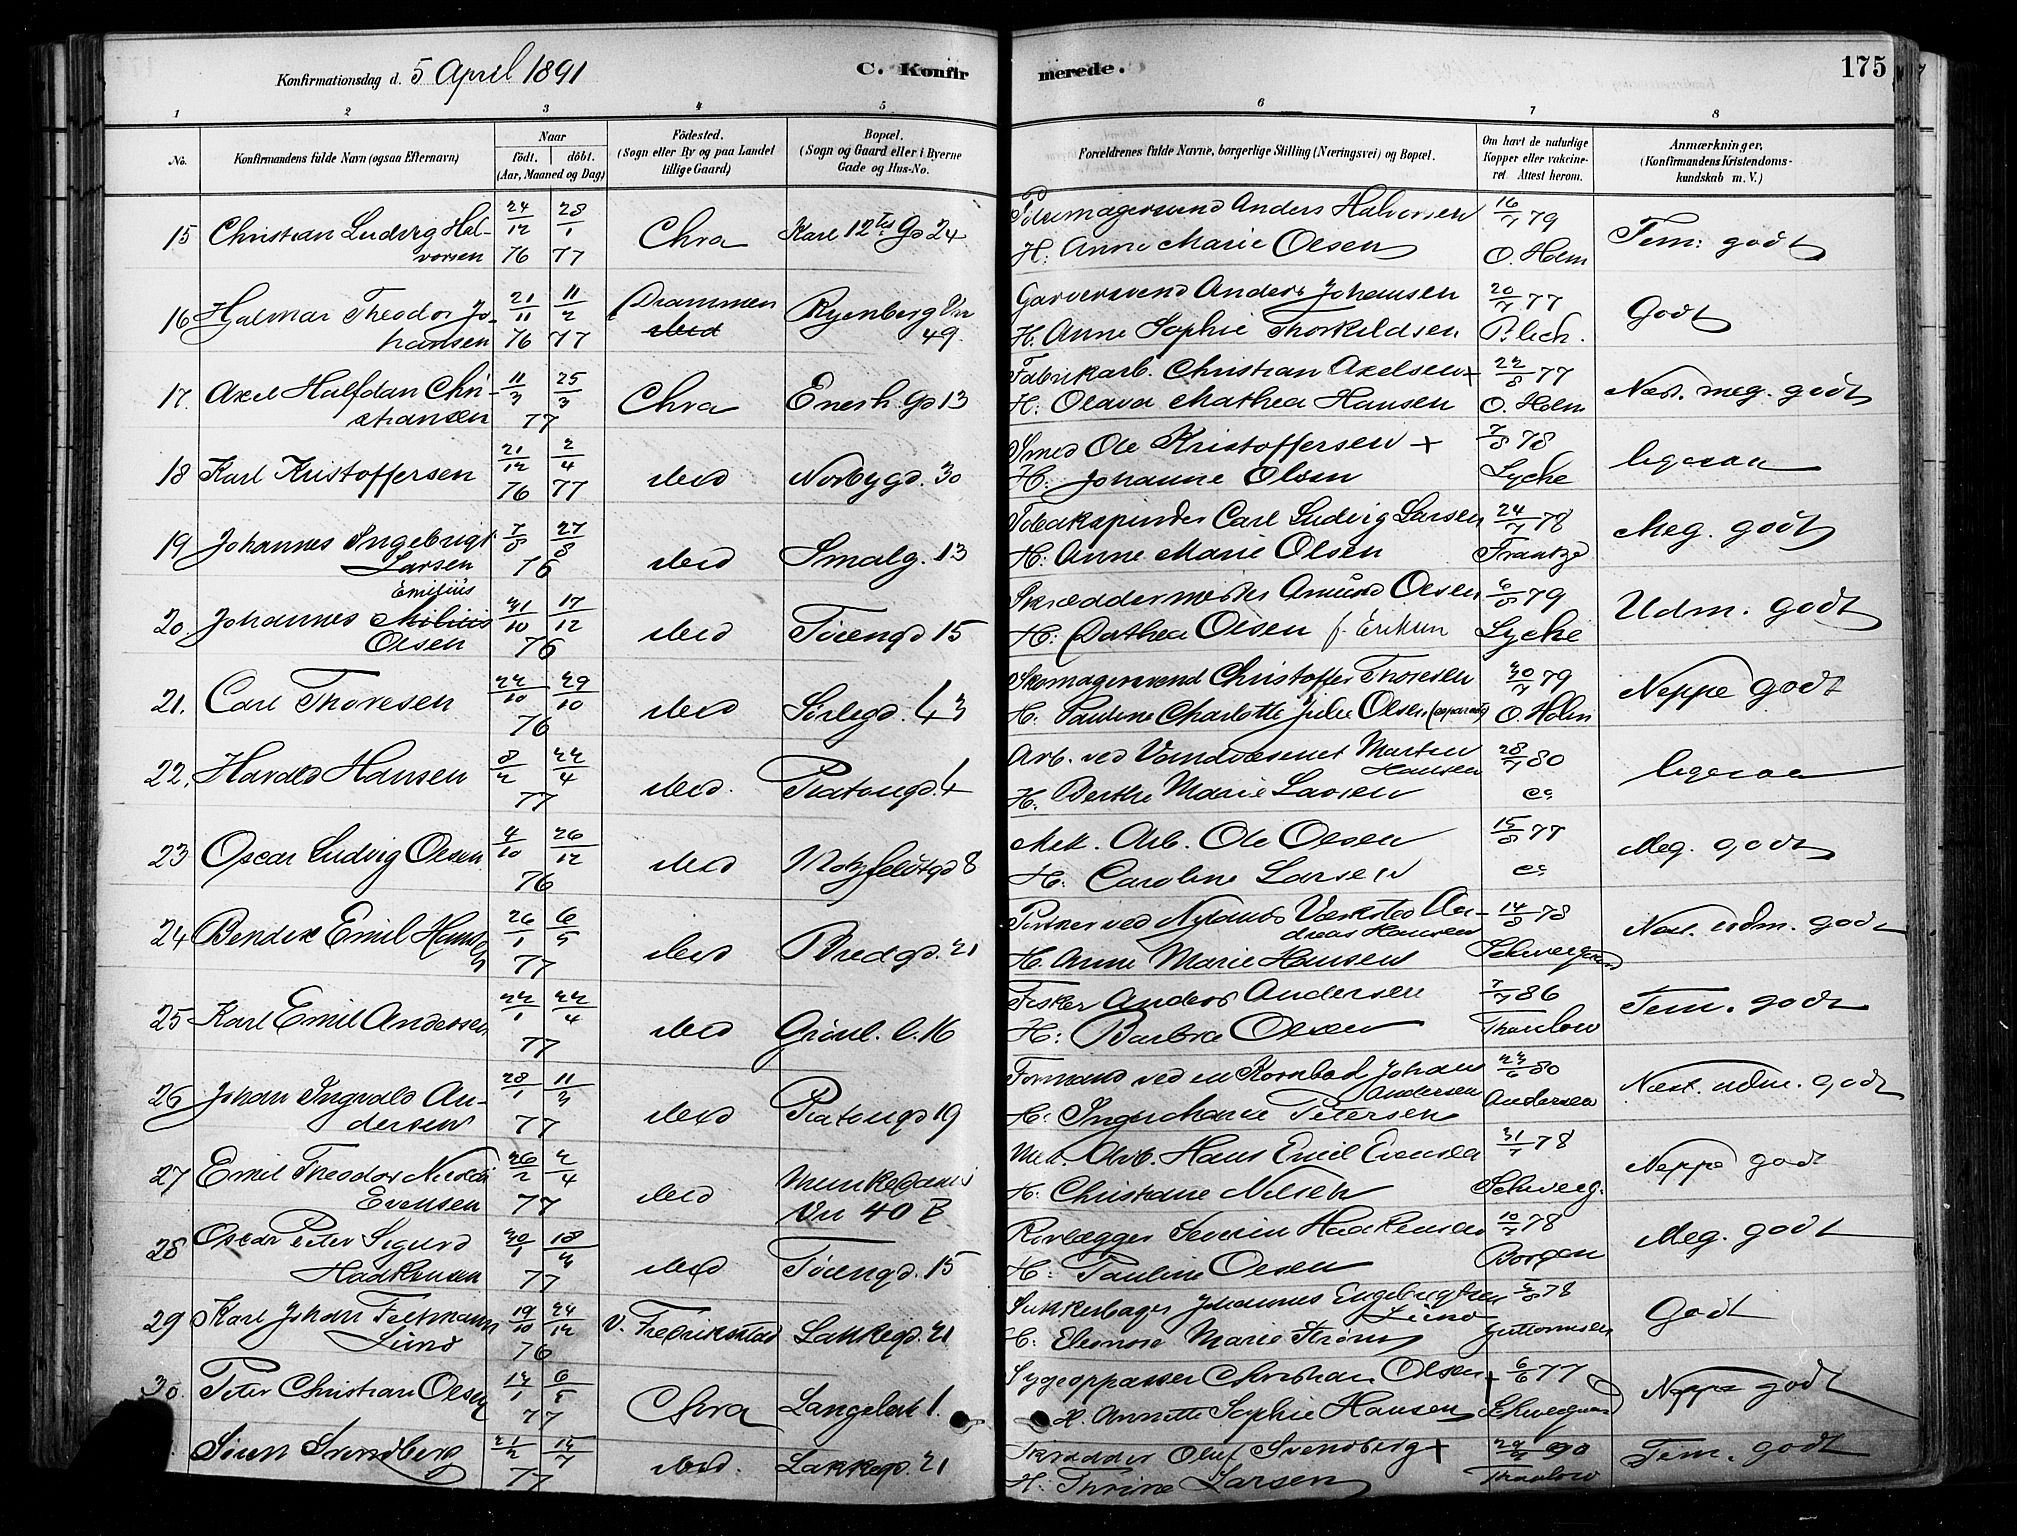 Konfirmationsdag d. 5 April 1891
C. Konfirmerede.
175
1 2 3 4 5 6 7 8
No.
Konfirmandens fulde Navn (ogsaa Efternavn)
Naar
födt. döbt.
(Aar, Maaned og Dag)
Födested.
(Sogn eller By og paa Landet
tillige Gaard)
Bopæl.
(Sogn og Gaard eller i Byerne
Gade og Hus-No.
Forældrenes fulde Navne, borgerlige Stilling (Næringsvei) og Bopæl.
Om havt de naturlige
Kopper eller vakcine-
ret. Attest herom.
Anmærkninger.
(Konfirmandens Kristendoms-
kundskab m. V.)
15 Christian Ludvig Hal-
vorsen
24/12 76 28/1 77
Chra
Karl 12tes Gd 24
Anders Halvorsen
H: Anne Marie Olsen
16/7 79
O. Holm
Tem: godt
16 Hjalmar Theodor Jo-
hansen
21/11 76 11/2 77
Drammen
Ryenberg Vn
49.
Garversvend Anders Johansen
H. Anne Sophie Thorkildsen
20/7 77
Blich.
Godt
17. Axel Halfdan Chri-
stiansen
11/3 25/3
77
Chra
Enerh. Gd 13
Fabrikarb. Christian Axelsen +
H: Olava Mathea Hansen
22/8 77
O. Holm
Næst. meg. godt
18 Karl Kristoffersen
21/12 76 2/4 77
sted
Norbygd. 30
Smed Ole Kristoffersen +
H: Johanne Olsen
7/8 78
Lyche
ligesaa
19 Johannes Ingebrigt
Larsen
7/8 27/8
76
sted
Smalg. 13
Tobakspinder Carl Ludvig Larsen
H: Anne Marie Olsen
24/7 78
Meg. godt
20 Johannes Emilius
Olsen
31/10 17/12
76
sted
Töiengd 15
Skræddermester Amund Olsen
H: Dorthea Olsen f. Eriksen
6/8 79
Lyche
Udm. godt
21. Carl Thoresen
22/10 29/10
76
sted
Sörlegd. 43
Skomagersvend Christoffer Thoresen
H. Pauline Charlotte Julie Olsen (separeret)
30/7 79
O. Holm
Neppe godt
22. Harald Hansen
8/2 22/4
77
sted.
Platougd. 4
Arb. ved Vandvæsenet Martin
Hansen
H. Berthe Marie Larsen
28/7 80
ligesaa
23 Oscar Ludvig Olsen
4/10 26/12
76
sted
Motzfeldtgd 8
Mek. Arb. Ole Olsen
H. Caroline Larsen
15/8 77
Meg. godt
24 Bendix Emil Hansen
26/1 6/5
77
sted
Bredgd. 21
Portner ved Nylands Værksted An-
dreas Hansen
H. Anne Marie Hansen
14/8 78
Schweigaard
Næst. udm. godt
25 Karl Emil Andersen
22/1 22/4
77
sted
Grönl. l. 16
Fisker Anders Andersen
H: Barbra Olsen
7/7 86
Thaulow
Tem. godt
26 Johan Ingvald An-
dersen
28/1 11/3
77
sted
Platougd 19
Formand ved en Kornbod Johan
Andersen
H: Inger Marie Petersen
23/6 80
Andersen
Næst. udm. godt
27 Emil Theodor Nicolai
Evensen
26/2 2/4
77
sted
Munkedams
Vn 40 B
Mek. Arb. Hans Emil Evensen
H. Christiane Nilsen
31/7 78
Schweig.
Neppe godt
28 Oscar Peter Sigurd
Haakensen
30/1 18/3
77
sted
Töiengd. 15
Rörlægger Severin Haakensen
H: Pauline Olsen
10/7 78
Borgen
Meg. godt
29 Karl Johan Feltmann
Lund
19/10 24/12
76
V. Fredrikstad
Lakkegd. 21
Johannes Engebrigtsen
Lund
H. Eleonore Marie Ström
78
Guttormsen
Godt
30. Peter Christian Olsen
14/1 6/5
77
Chra
Langeleik 1.
Sygeoppasser Christian Olsen +
H. Annette Sophie Hansen
6/6 77
Schweigaard
Neppe godt
Sören Svendberg
21/2 15/7
77
sted.
Lakkegd. 21
Skrædder Oluf Svendberg +
H: Thrine Larsen
90
Thaulow
Tem. godt